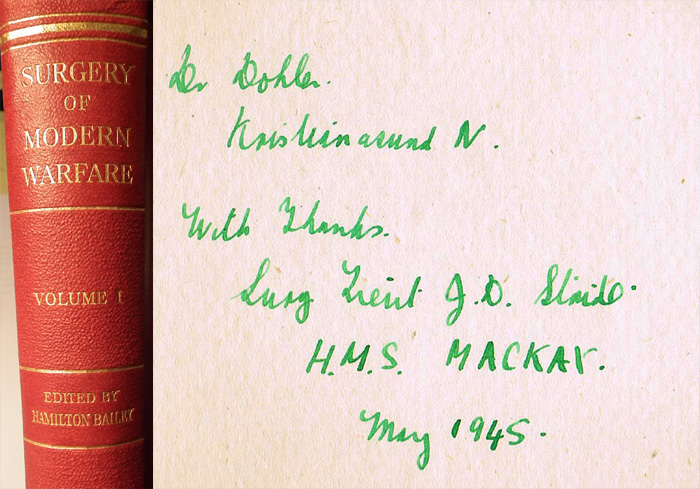 SURGERY
OF
MODERN
WARFARE
VOLUME I
EDITED BY
HAMILTON BAILEY
Dr Dohler.
Kristiansund N.
With Thanks.
Surg Lieut J.D.
H.M.S. MACKAY.
May 1945.